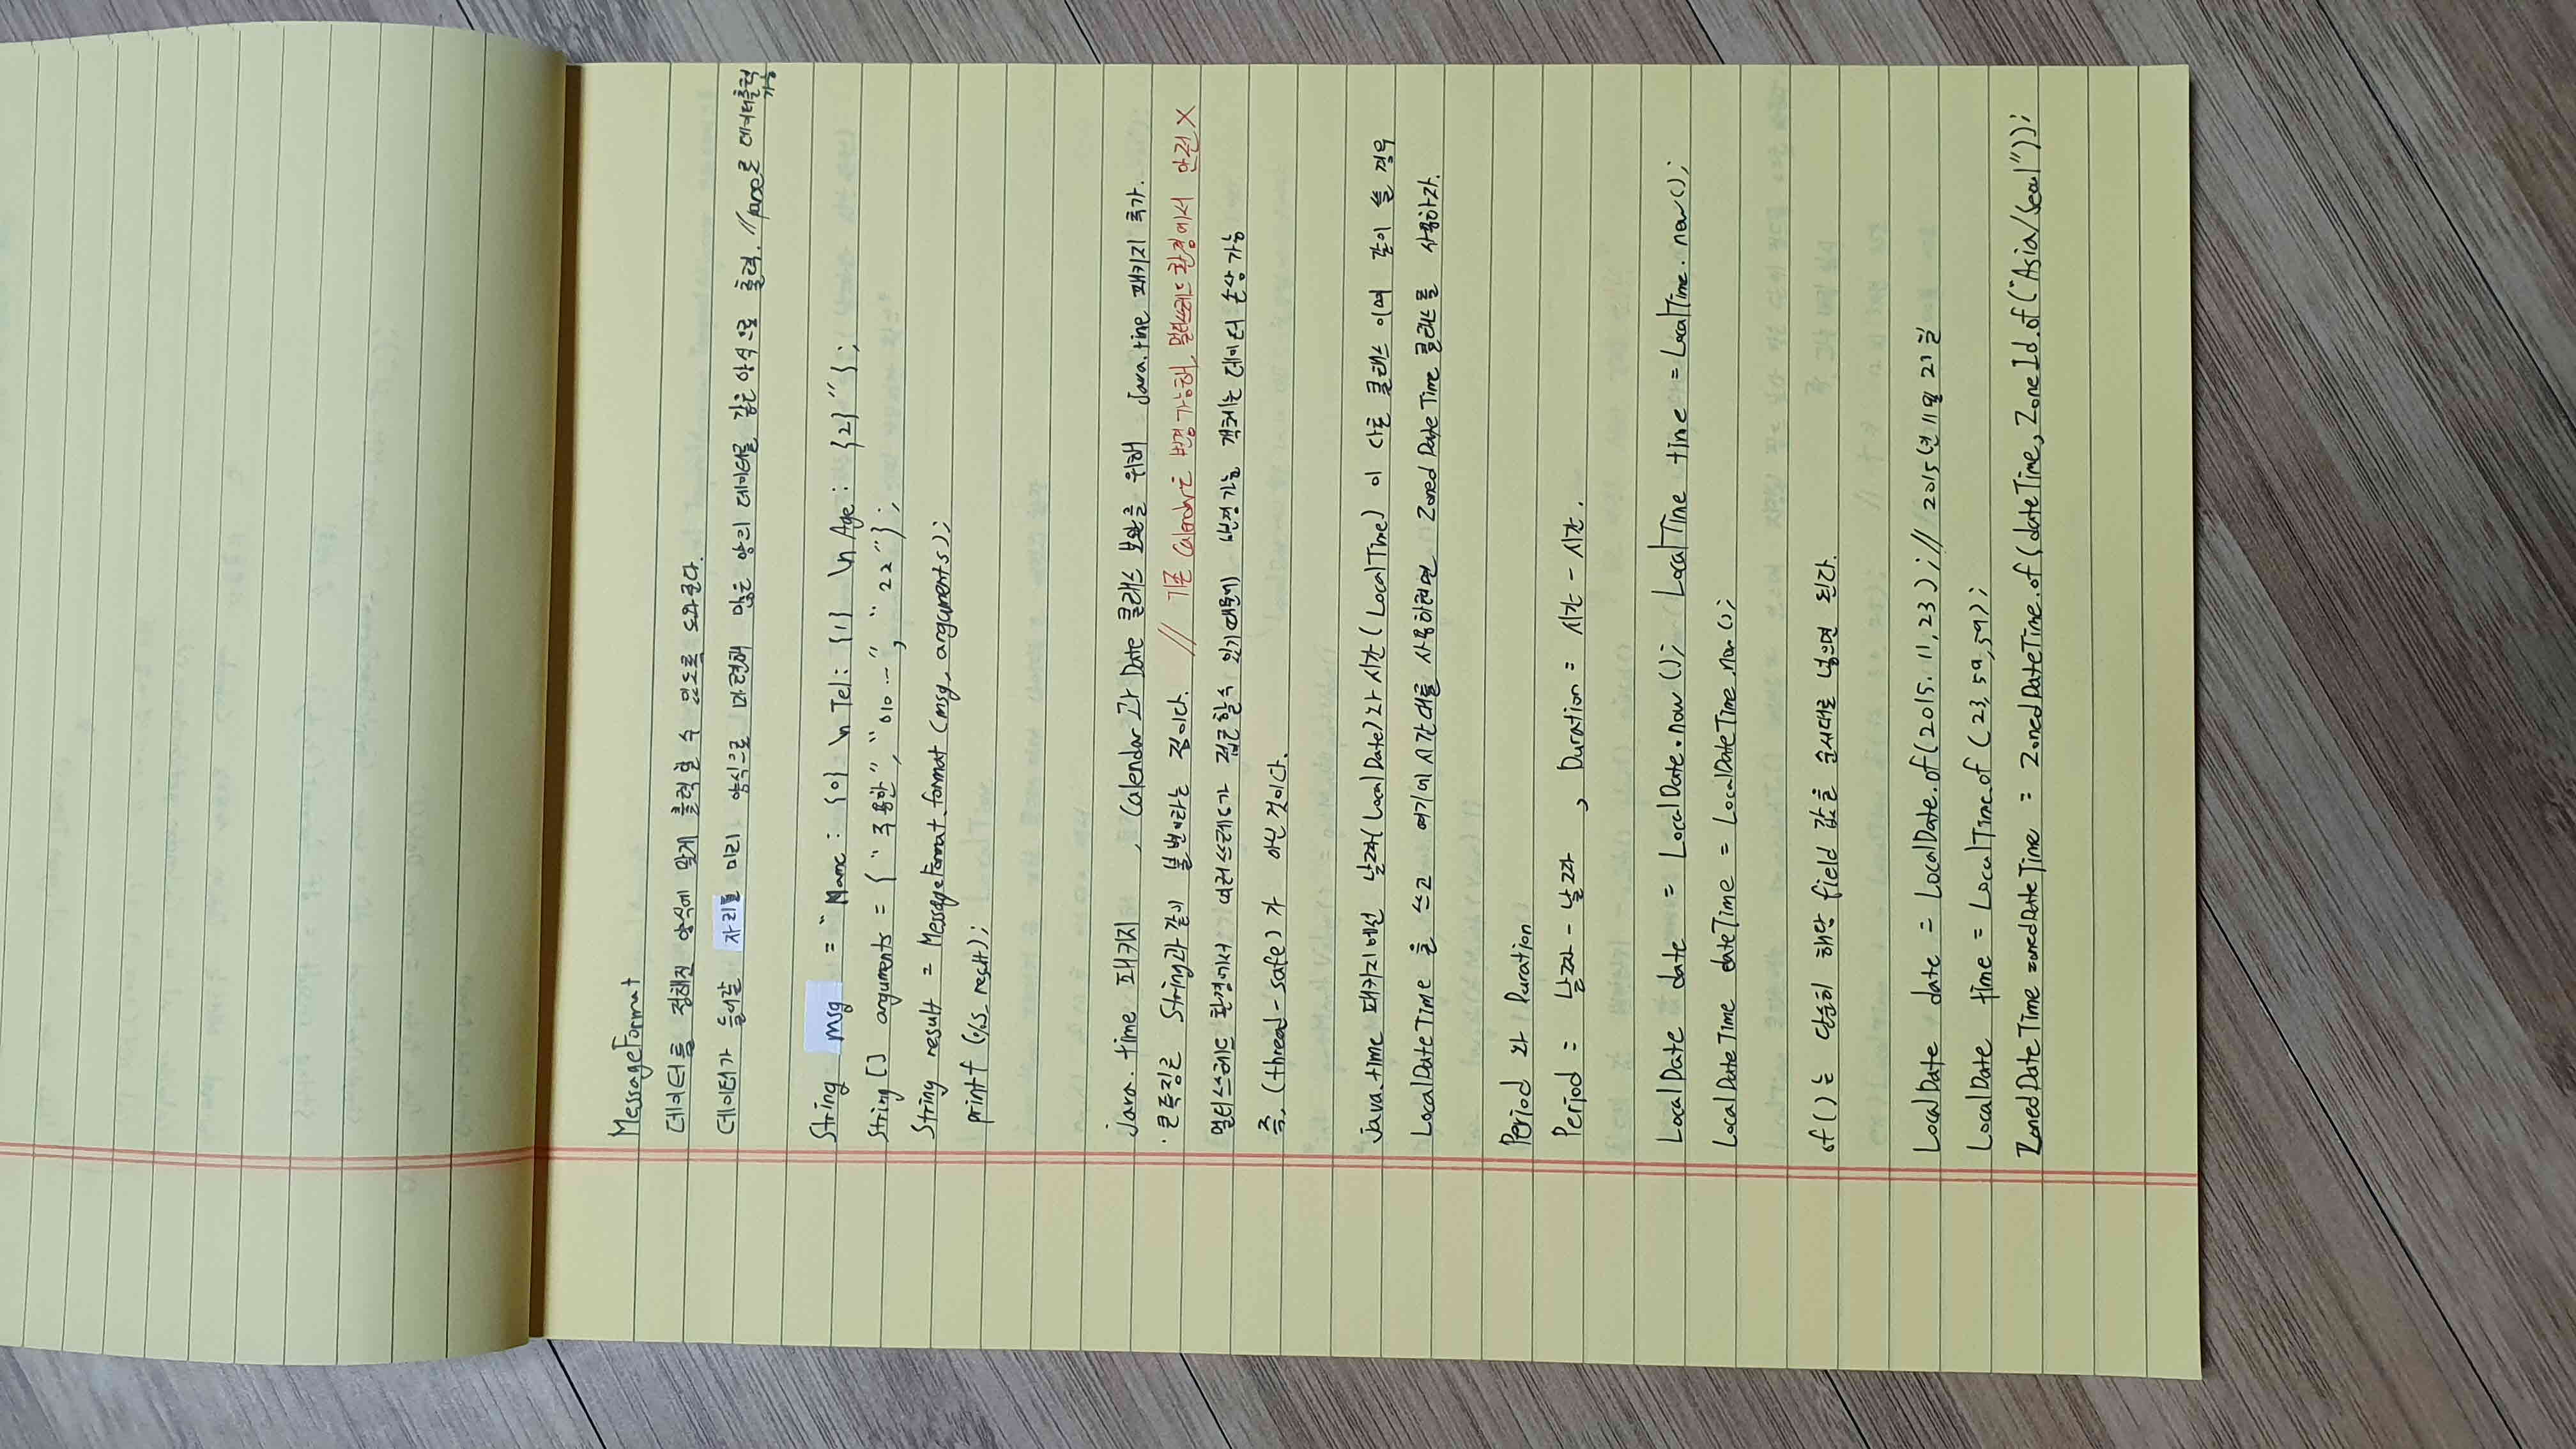 MessageFormat
데이터를 정해진 양식에 맞게 출력할 수 있도록 도와준다.
데이터가 들어갈 자리를 미리 양식으로 마련해 많은 양의 데이터를 같은 양식으로 출력. //parse로 데이터출력 가능
String msg = "Name : {0} \n Tel : {1} \n Age : {2} "};
String [] arguments = { " 주용한", "010 …", " 22 "};
String result = MessageFormat.format (msg, arguments);
printf (%s, result);
java. time 패키지 , Calendar과 Date 클래스 보완를 위해 java.time 패키지 추가.
· 큰특징은 String과 같이 불변이라는 점이다. // 기존 Calendar는 변경 가능해, 멀티쓰레드 환경에서 안전 X
멀티쓰레드 환경에서 여러쓰레드가 접근할수 있기때문에 변경가능 객체는 데이터 손상 가능
즉, (thread-safe) 가 아닌것이다.
java.time 패키지에선 날짜(LocalDate)와 시간(LocalTime) 이 다른 클래스 이며 같이 쓸 경우
LocalDateTime 을 쓰고 여기에 시간대를 사용하려면 ZonedDateTime 클래스를 사용하자.
Period 와 Duration
Period = 날짜 - 날짜 , Duration = 시간 - 시간.
LocalDate date = LocalDate.now(); LocalTime time = LocalTime. now();
LocalDateTime dateTime = LocalDateTime.now();
of()는 단순히 해당 field 값을 순서대로 넣으면 된다.
LocalDate date = LocalDate.of(2015. 11, 23); // 2015년 11월 23일
LocalDate time = LocalTime.of (23, 59, 59);
ZonedDateTime zonedDateTime = ZonedDateTime.of(dateTime, ZoneId.of("Asia/Seoul"));